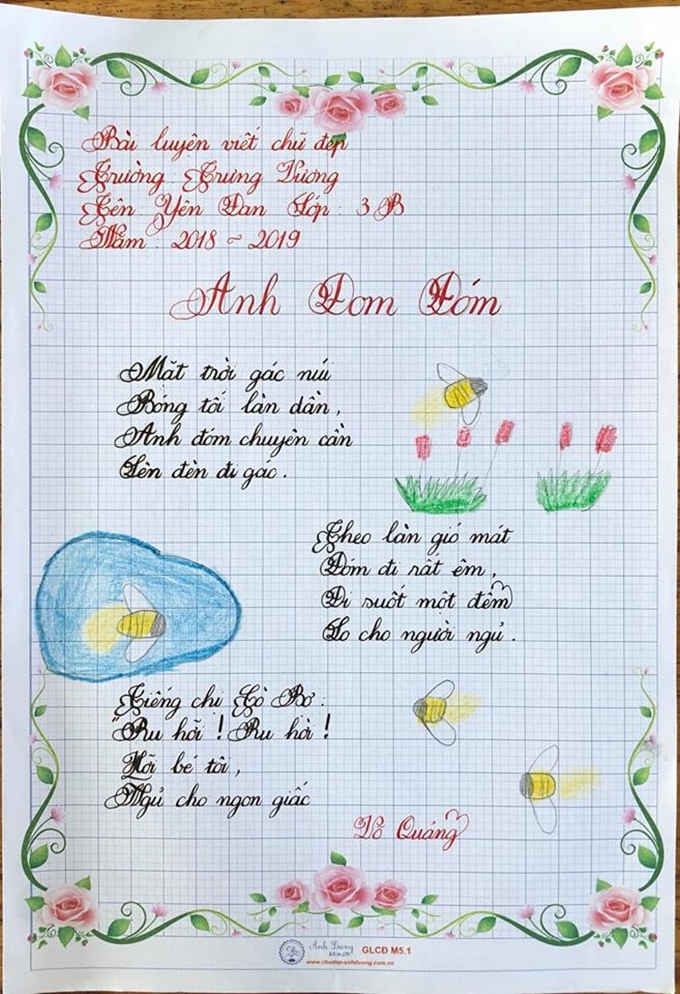 Bài luyện viết chữ đẹp
Trường : Trưng Vương
Tên : Yên Đan Lớp : 3 B
Năm : 2018 ~ 2019
Anh Đom Đóm
Mặt trời gác núi
Bóng tối lan dần,
Anh đóm chuyên cần
Lên đèn đi gác.
Theo làn gió mát
Đóm đi rất êm,
Đi suốt một đêm
Lo cho người ngủ.
Tiếng chị Cò Bợ :
"Ru hỡi ! Ru hời !
Hỡi bé tôi,
Ngủ cho ngon giấc
Võ Quảng
Anh Dương
GLCĐ M5.1
www.chudep-anhduong.com.vn